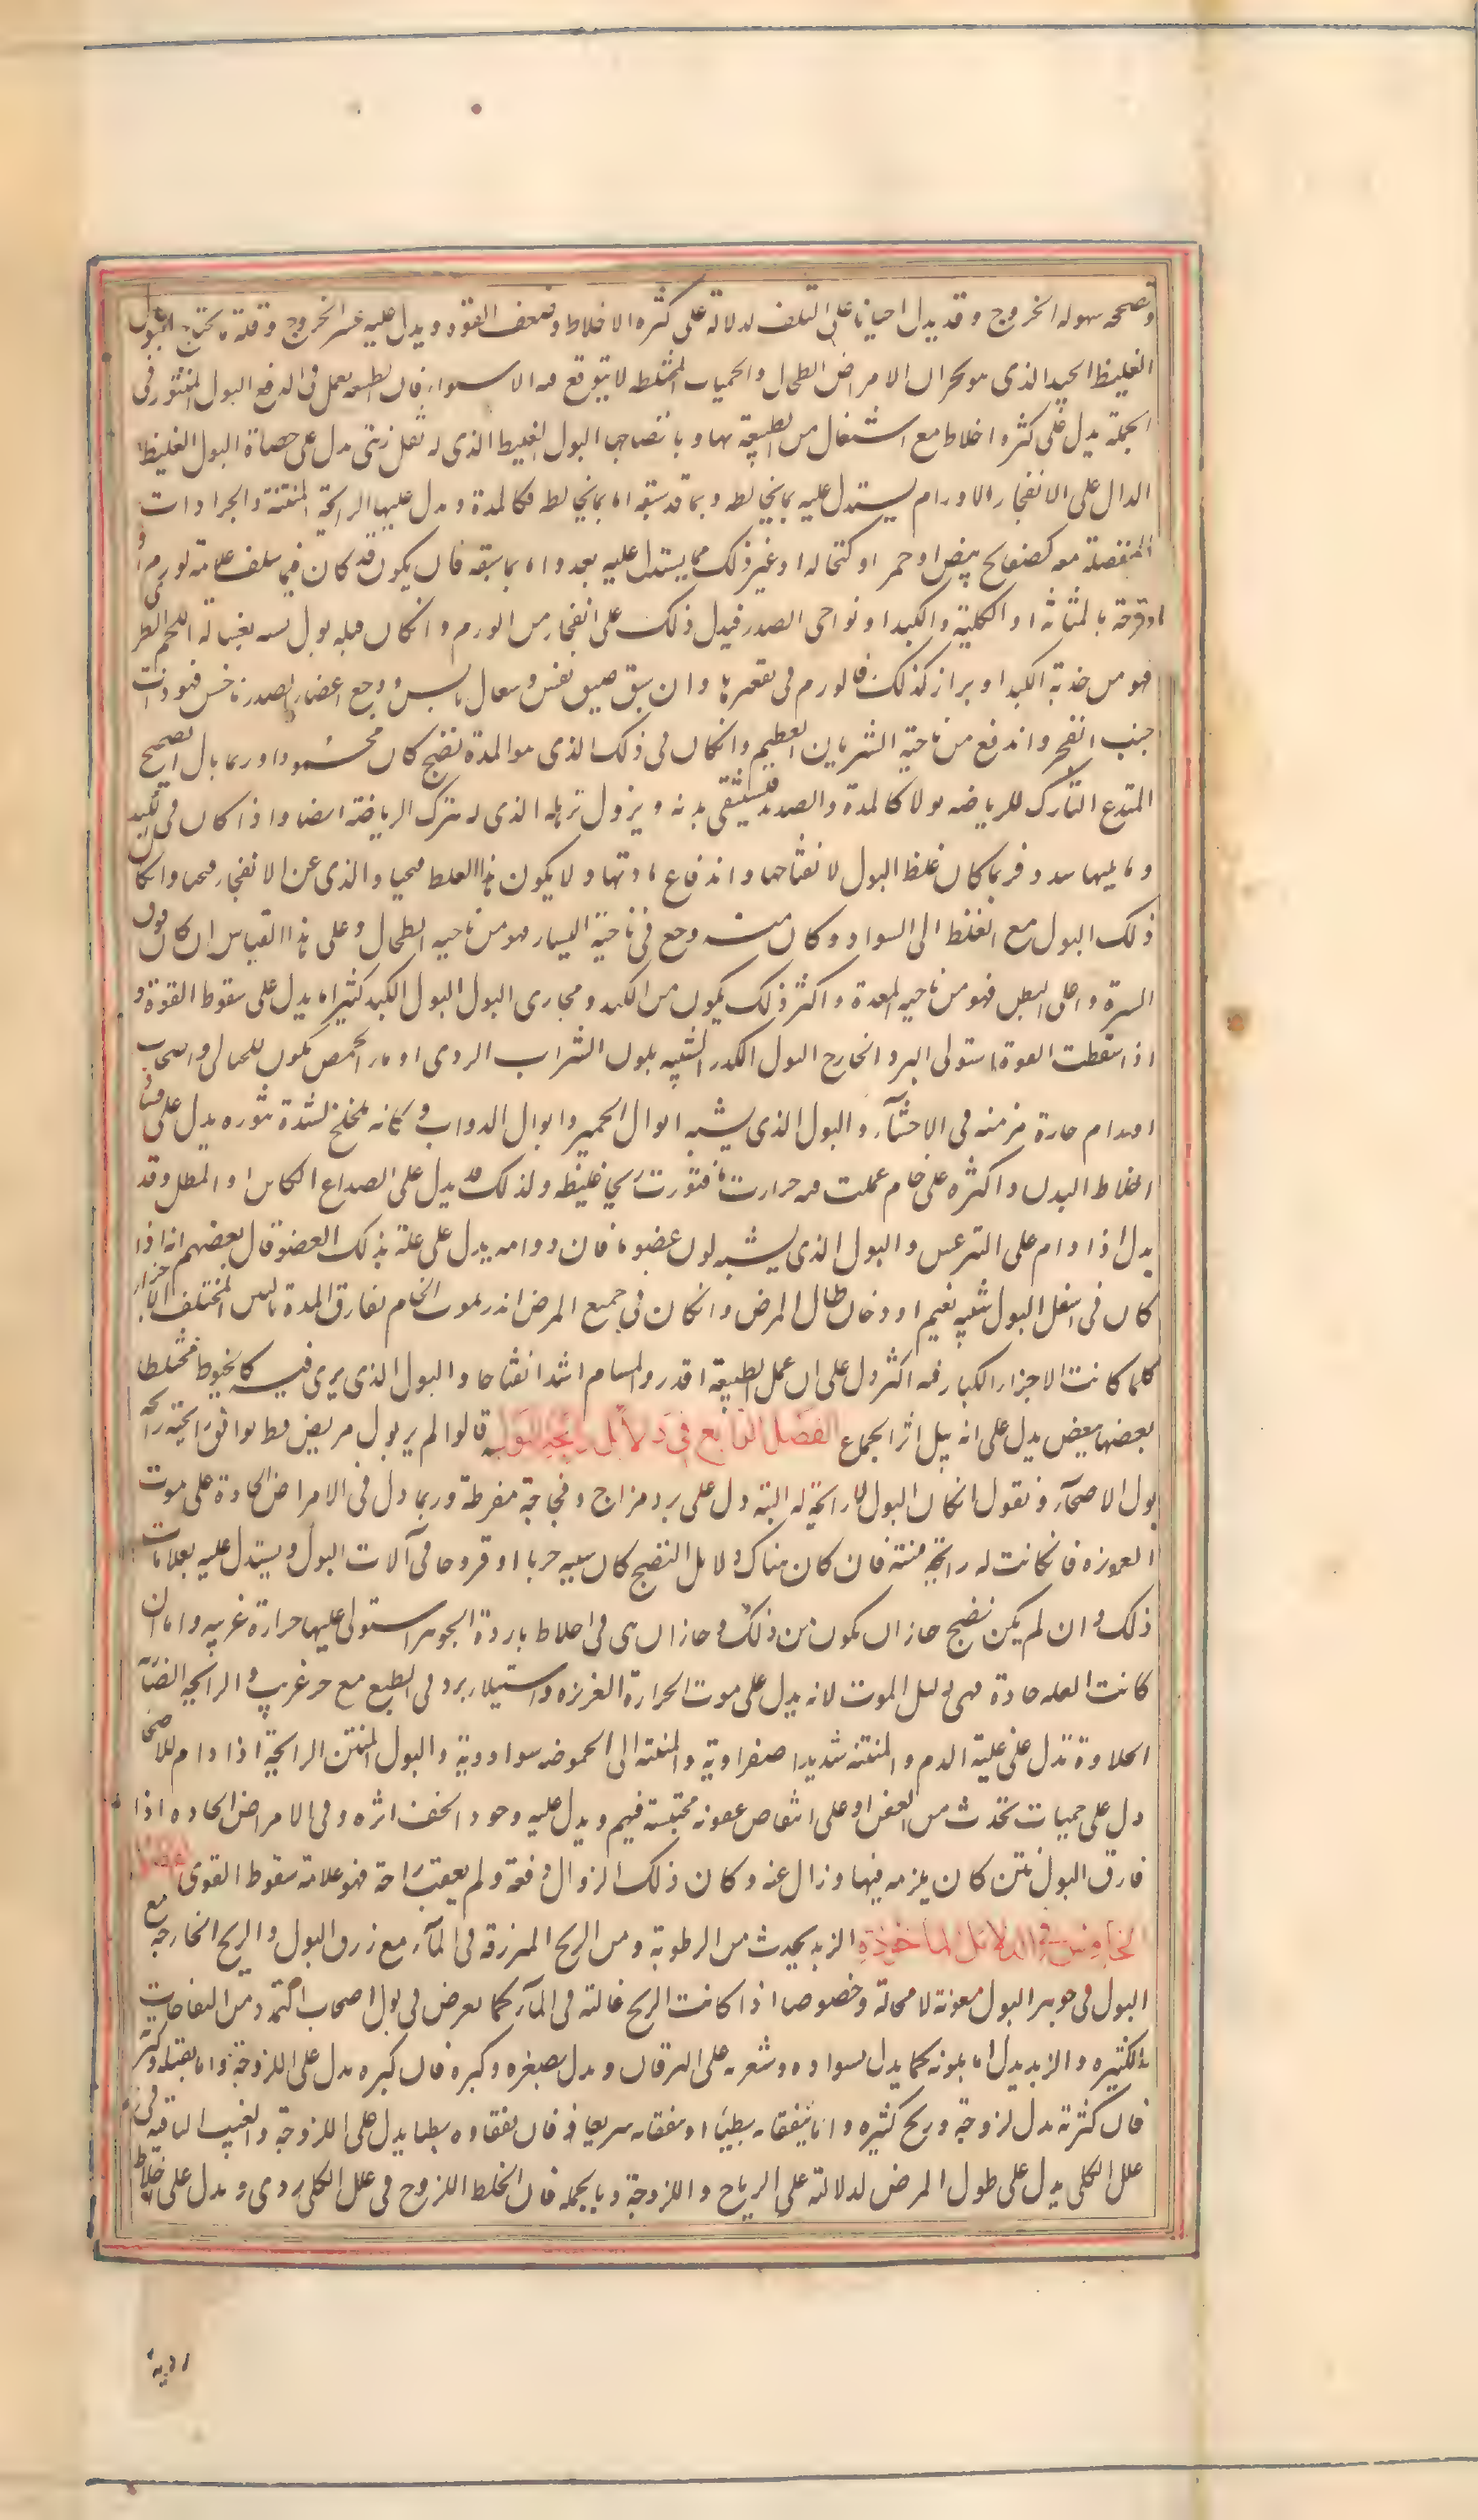 وتصحه سهولة الخروج وقد يدل احيانا على التلف لدلالة على كثرة الاخلاط وضعف القوة ويدل عليه عسر الخروج وقلة ما يخرج البول
الغليظ الجيد الذى هو بحران الامراض الطحال والحميات المختلطة لا يتوقع معه الاستواء فان الطبيعة تعمل فى الدفع البول المنثور فى
الجملة يدل على كثرة اخلاط مع اشتغال من الطبيعة بها وبانضاجها البول الغليظ الذى له ثفل زيتى يدل على حصاة البول الغليظ
الدال على الانفجار الاورام يستدل عليه بما يخالطه وبما قد سبقه اما بما يخالطه فكالمدة ويدل عليها الرائحة المنتنة والجرادات
المنفصلة معه كصفائح بيض او حمر او كنخالة او غير ذلك مما يستدل عليه بعد واما بما سبقه فان يكون قد كان فيما سلف علامة لورم
او قرحة بالمثانة او الكلية والكبد او نواحى الصدر فيدل ذلك على انفجار من الورم وان كان قبله بول يشبه غسالة اللحم الطرى
فهو من حدبة الكبد او براز كذلك فالورم فى تقعيرها وان سبق ضيق نفس وسعال يابس ووجع اعضاء الصدر ناخس فهو ذات
جنب انفجر واندفع من ناحية الشريان العظيم وان كان فى ذلك الذى هو المدة نضج كان محمودا وربما بال الصحيح
المتدع التارك للرياضة بولا كالمدة والصديد فيستنقى بدنه ويزول ترهله الذى له بترك الرياضة ايضا واذا كان فى الكبد
وما يليها سدد فربما كان غلظ البول لانفتاحها واندفاع مادتها ولا يكون هذا الغلظ قيحيا والذى عن الانفجار قيحيا وان كان
ذلك البول مع الغلظ الى السواد وكان معه وجع فى ناحية اليسار فهو من ناحية الطحال وعلى هذا القياس ان كان فوق
السرة واعلى البطن فهو من ناحية المعدة واكثر ذلك يكون من الكبد ومجارى البول البول الكدر كثيرا ما يدل على سقوط القوة و
اذا سقطت القوة استولى البرد الخارج البول الكدر الشبيه بلون الشراب الردى او ماء الحمص يكون للحبالى واصحاب
اورام حارة مزمنة فى الاحشآء والبول الذى يشبه ابوال الحمير وابوال الدواب وكانه ملخلخ لشدة ثوره يدل على فساد
اخلاط البدن واكثره على خام عملت فيه حرارة ما فثورت ريحا غليظة ولذلك قد يدل على الصداع الكائن او المطل وقد
يدل اذا دام على الترعس والبول الذى يشبه لون عضو ما فان دوامه يدل على علة بذلك العضو قال بعضهم انه اذا
كان فى اسفل البول شبيه بغيم او دخان طال المرض وان كان فى جميع المرض انذر بموت الخام تفارق المدة بالنتن المختلف الاجزاء
كلما كانت الاجزاء الكبار فيه اكثر دل على ان عمل الطبيعة اقدر والمسام اشد انفتاحا والبول الذى يرى فيه كالخيوط مختلطا
بعضها ببعض يدل على انه بيل اثر الجماع الفصل الرابع فى دلائل رائحة البول قالوا لم ير بول مريض قط يوافق رائحته رائحة
بول الاصحآء ونقول ان كان البول لا رائحة له البتة دل على برد مزاج وفجاجة مفرطة وربما دل فى الامراض الحادة على موت
الغريزة فان كانت له رائحة منتنة فان كان هناك دلايل النضج كان سببه جربا او قروحا فى آلات البول ويستدل عليه بعلامات
ذلك وان لم يكن نضج جاز ان يكون من ذلك وجاز ان ى فى اخلاط باردة الجوهر استولى عليها حرارة غريبة واما ان
كانت العلة حادة فهى دليل الموت لانه يدل على موت الحرارة الغريزة واستيلاء برد فى الطبع مع حر غريب والرائحة الضآ
الحلاوة تدل على غلبة الدم والمنتنة شديدا صفراوية والمنتنة الى الحموضة سوداوية والبول المنتن الرائحة اذا دام للاصحا
دل على حميات تحدث من العفن او على انتقاص عفونة محتبسة فيهم ويدل عليه وجود الخف اثره وفى الامراض الحادة اذا
فارق البول نتن كان يلزمه فيها وزال عنه وكان ذلك الزوال دفعة ولم يعقب راحة فهو علامة سقوط القوى الفصل
الخامس فى الدلائل الماخوذة الزبد يحدث من الرطوبة ومن الريح المنزرقة فى المآء مع زرق البول والريح الخارجة مع
البول فى جوهر البول معونة لا محالة وخصوصا اذا كانت الريح غالبة فى المآء كما يعرض فى بول اصحاب التمدد من النفاخات
الكثيرة والزبد يدل اما بلونه كما يدل بسواده وشقرته على اليرقان ويدل بصغره وكبره فان كبره يدل على اللزوجة واما بقلته وكثرته
فان كثرته تدل لزوجة وريح كثيرة واما بتفقاه بطيئا او تفقاه سريعا فان تفقاوه بطيئا يدل على اللزوجة والغبب الباقية فى
علل الكلى يدل على طول المرض لدلالته على الرياح واللزوجة وبالجملة فان الخلط اللزوج فى علل الكلى ردى ويدل على اخلاط